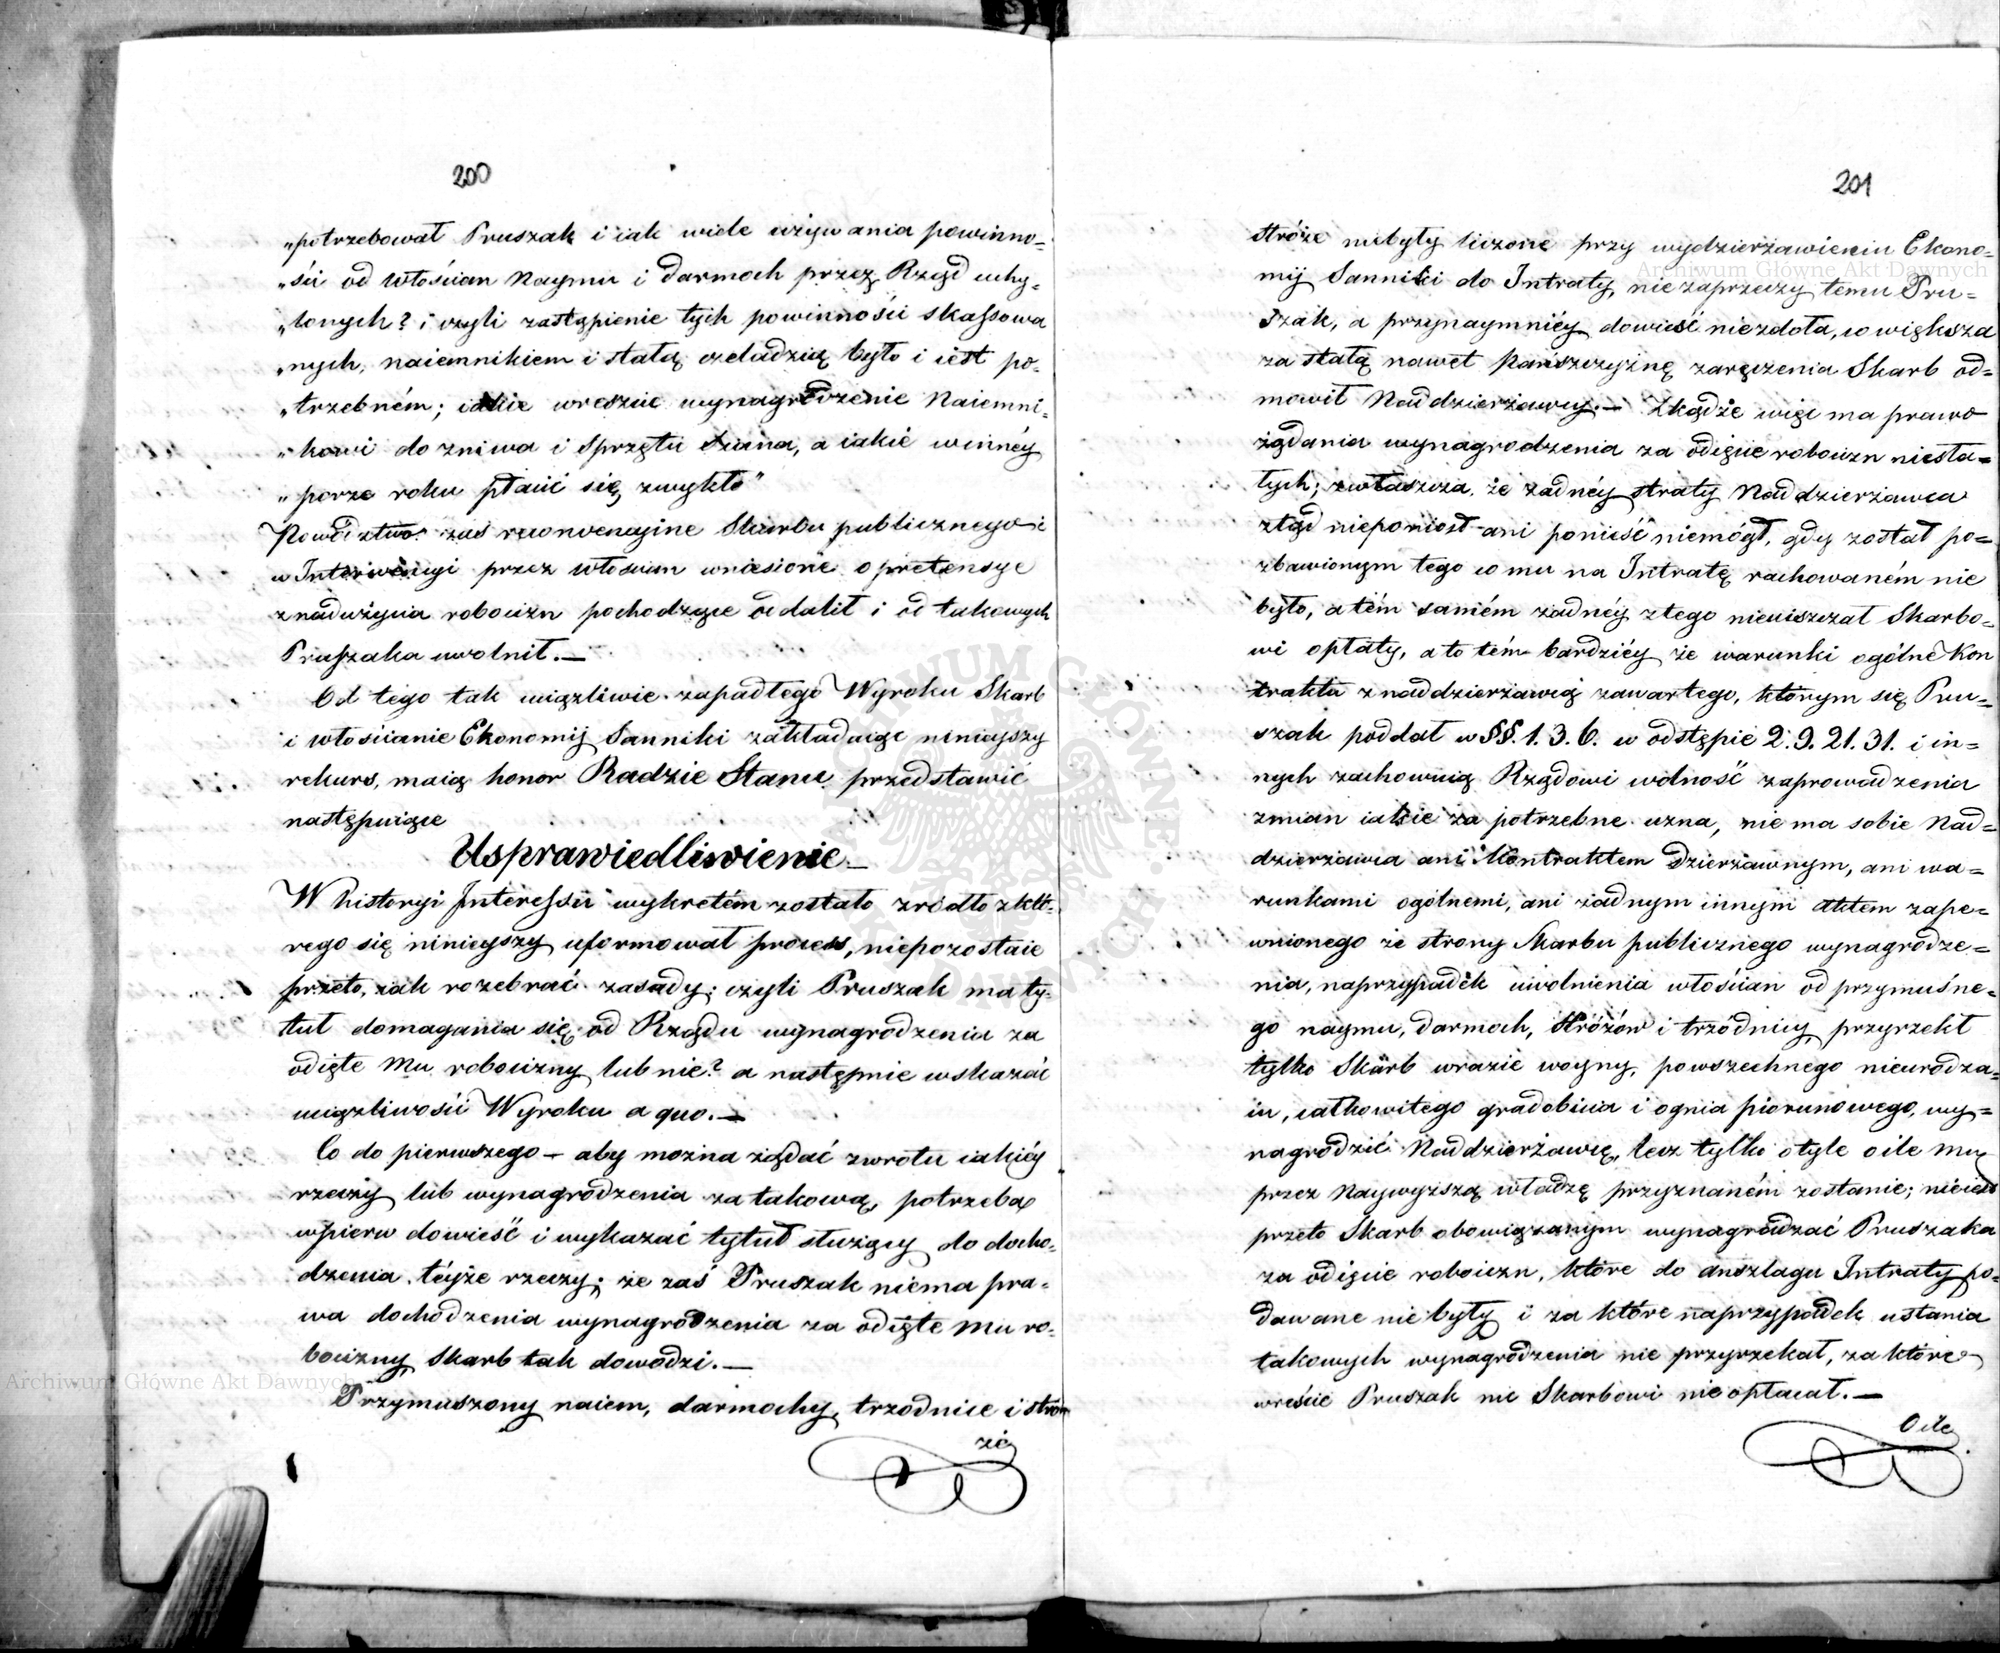 200
„potrzebował Pruszak i iak wiele używania powinno=
„ści od włościan Naymu i darmoch przez Rząd uchy=
„lonych? i czyli zastąpienie tych powinności skassowa
„nych, naiemnikiem i stałą czeladzią było i iest po=
„trzebném; iakie wreszcie wynagrodzenie Naiemni=
„kowi do żniwa i Sprzętu Siana, a iakie w innéy
„porze roku płacić się zwykło"
Powództwo zaś rekonwencyjne Skarbu publicznego i
w Interwencyi przez włościan wniesione o pretensye
z nadużycia robocizn pochodzące oddalił i od takowych
Pruszaka uwolnił.—
Od tego tak uciążliwie zapadłego Wyroku Skarb
i włościanie Ekonomij Sanniki zakładaiąc ninieyszy
rekurs, maią honor Radzie Stanu przedstawić
następuiące
Usprawiedliwienie—
W historyi Interessu wykretém zostało zródło z któ=
rego się ninieyszy uformował process, niepozostaie
przeto, iak rozebrać zasady; czyli Pruszak ma ty=
tuł domagania się od Rządu wynagrodzenia za
odięte Mu robocizny lub nie? a następnie wskazać
uciążliwości Wyroku a quo.—
Co do pierwszego — aby można żądać zwrotu iakiéy
rzeczy lub wynagrodzenia za takową, potrzeba
wpierw dowieść i wykazać tytuł służący do docho=
dzenia téyże rzeczy; że zaś Pruszak niema pra=
wa dochodzenia wynagrodzenia za odięte Mu ro=
bocizny Skarb tak dowodzi.—
Przymuszony naiem, darmochy, trzodnice i stró=
że
201
stróże niebyły liczone przy wydzierżawieniu Ekono=
mij Sanniki do Intraty, nie zaprzeczy temu Pru=
szak, a przynaymniéy dowieść niezdoła, co większa
za stałą nawet pańszczyznę zaręczenia Skarb od=
mowił Naddzierżawcy.— Zkądże więc ma prawo
żądania wynagrodzenia za odięcie robocizn niesta=
łych; zwłaszcza, że żadnéy straty Naddzierżawca
ztąd nieponiosł ani ponieść niemógł, gdy został po=
zbawionym tego co mu na Intratę rachowaném nie
było, a tém samém żadnéy z tego nieuiszczał Skarbo=
wi opłaty, a to tém bardziéy że warunki ogólne Kon
traktu z naddzierżawcą zawartego, którym się Pru=
szak poddał w §§. 1. 3. 6. w odstępie 2. 9. 21. 31. i in=
nych zachowuią Rządowi wolność zaprowadzenia
zmian iakie za potrzebne uzna, nie ma sobie Nad=
dzierżawca ani Kontraktem Dzierżawnym, ani wa=
runkami ogólnemi, ani żadnym innym aktem zape=
wnionego ze strony Skarbu publicznego wynagrodze=
nia, naprzypadek uwolnienia włościan od przymuśne=
go naymu, darmoch, Stróżów i trzódnicy, przyrzekł
tylko Skarb wrazie woyny, powszechnego nieurodza=
iu, całkowitego gradobicia i ognia piorunowego, wy=
nagrodzić Naddzierżawcę, lecz tylko o tyle o ile mu
przez Naywyższą władzę przyznaném zostanie; nieiest
przeto Skarb obowiązanym wynagradzać Pruszaka
za odięcie robocizn, które do anszlagu Intraty po=
dawane nie były i za które naprzypadek ustania
takowych wynagrodzenia nie przyrzekał, za które
wreście Pruszak nic Skarbowi nie opłacał.—
O ile
Archiwum Główne Akt Dawnych
Archiwum Główne Akt Dawnych
ARCHIWUM GŁÓWNE AKT DAWNYCH